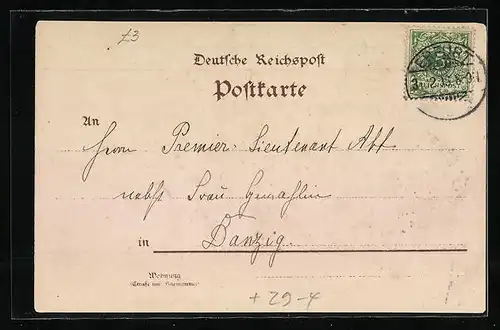 £3
Deutsche Reichspost
Postkarte
An
Herrn Premier-Lieutenant Abt
nebst Frau Gemahlin
in Danzig
Wohnung
(Straße und Hausnummer)
+ 29-4